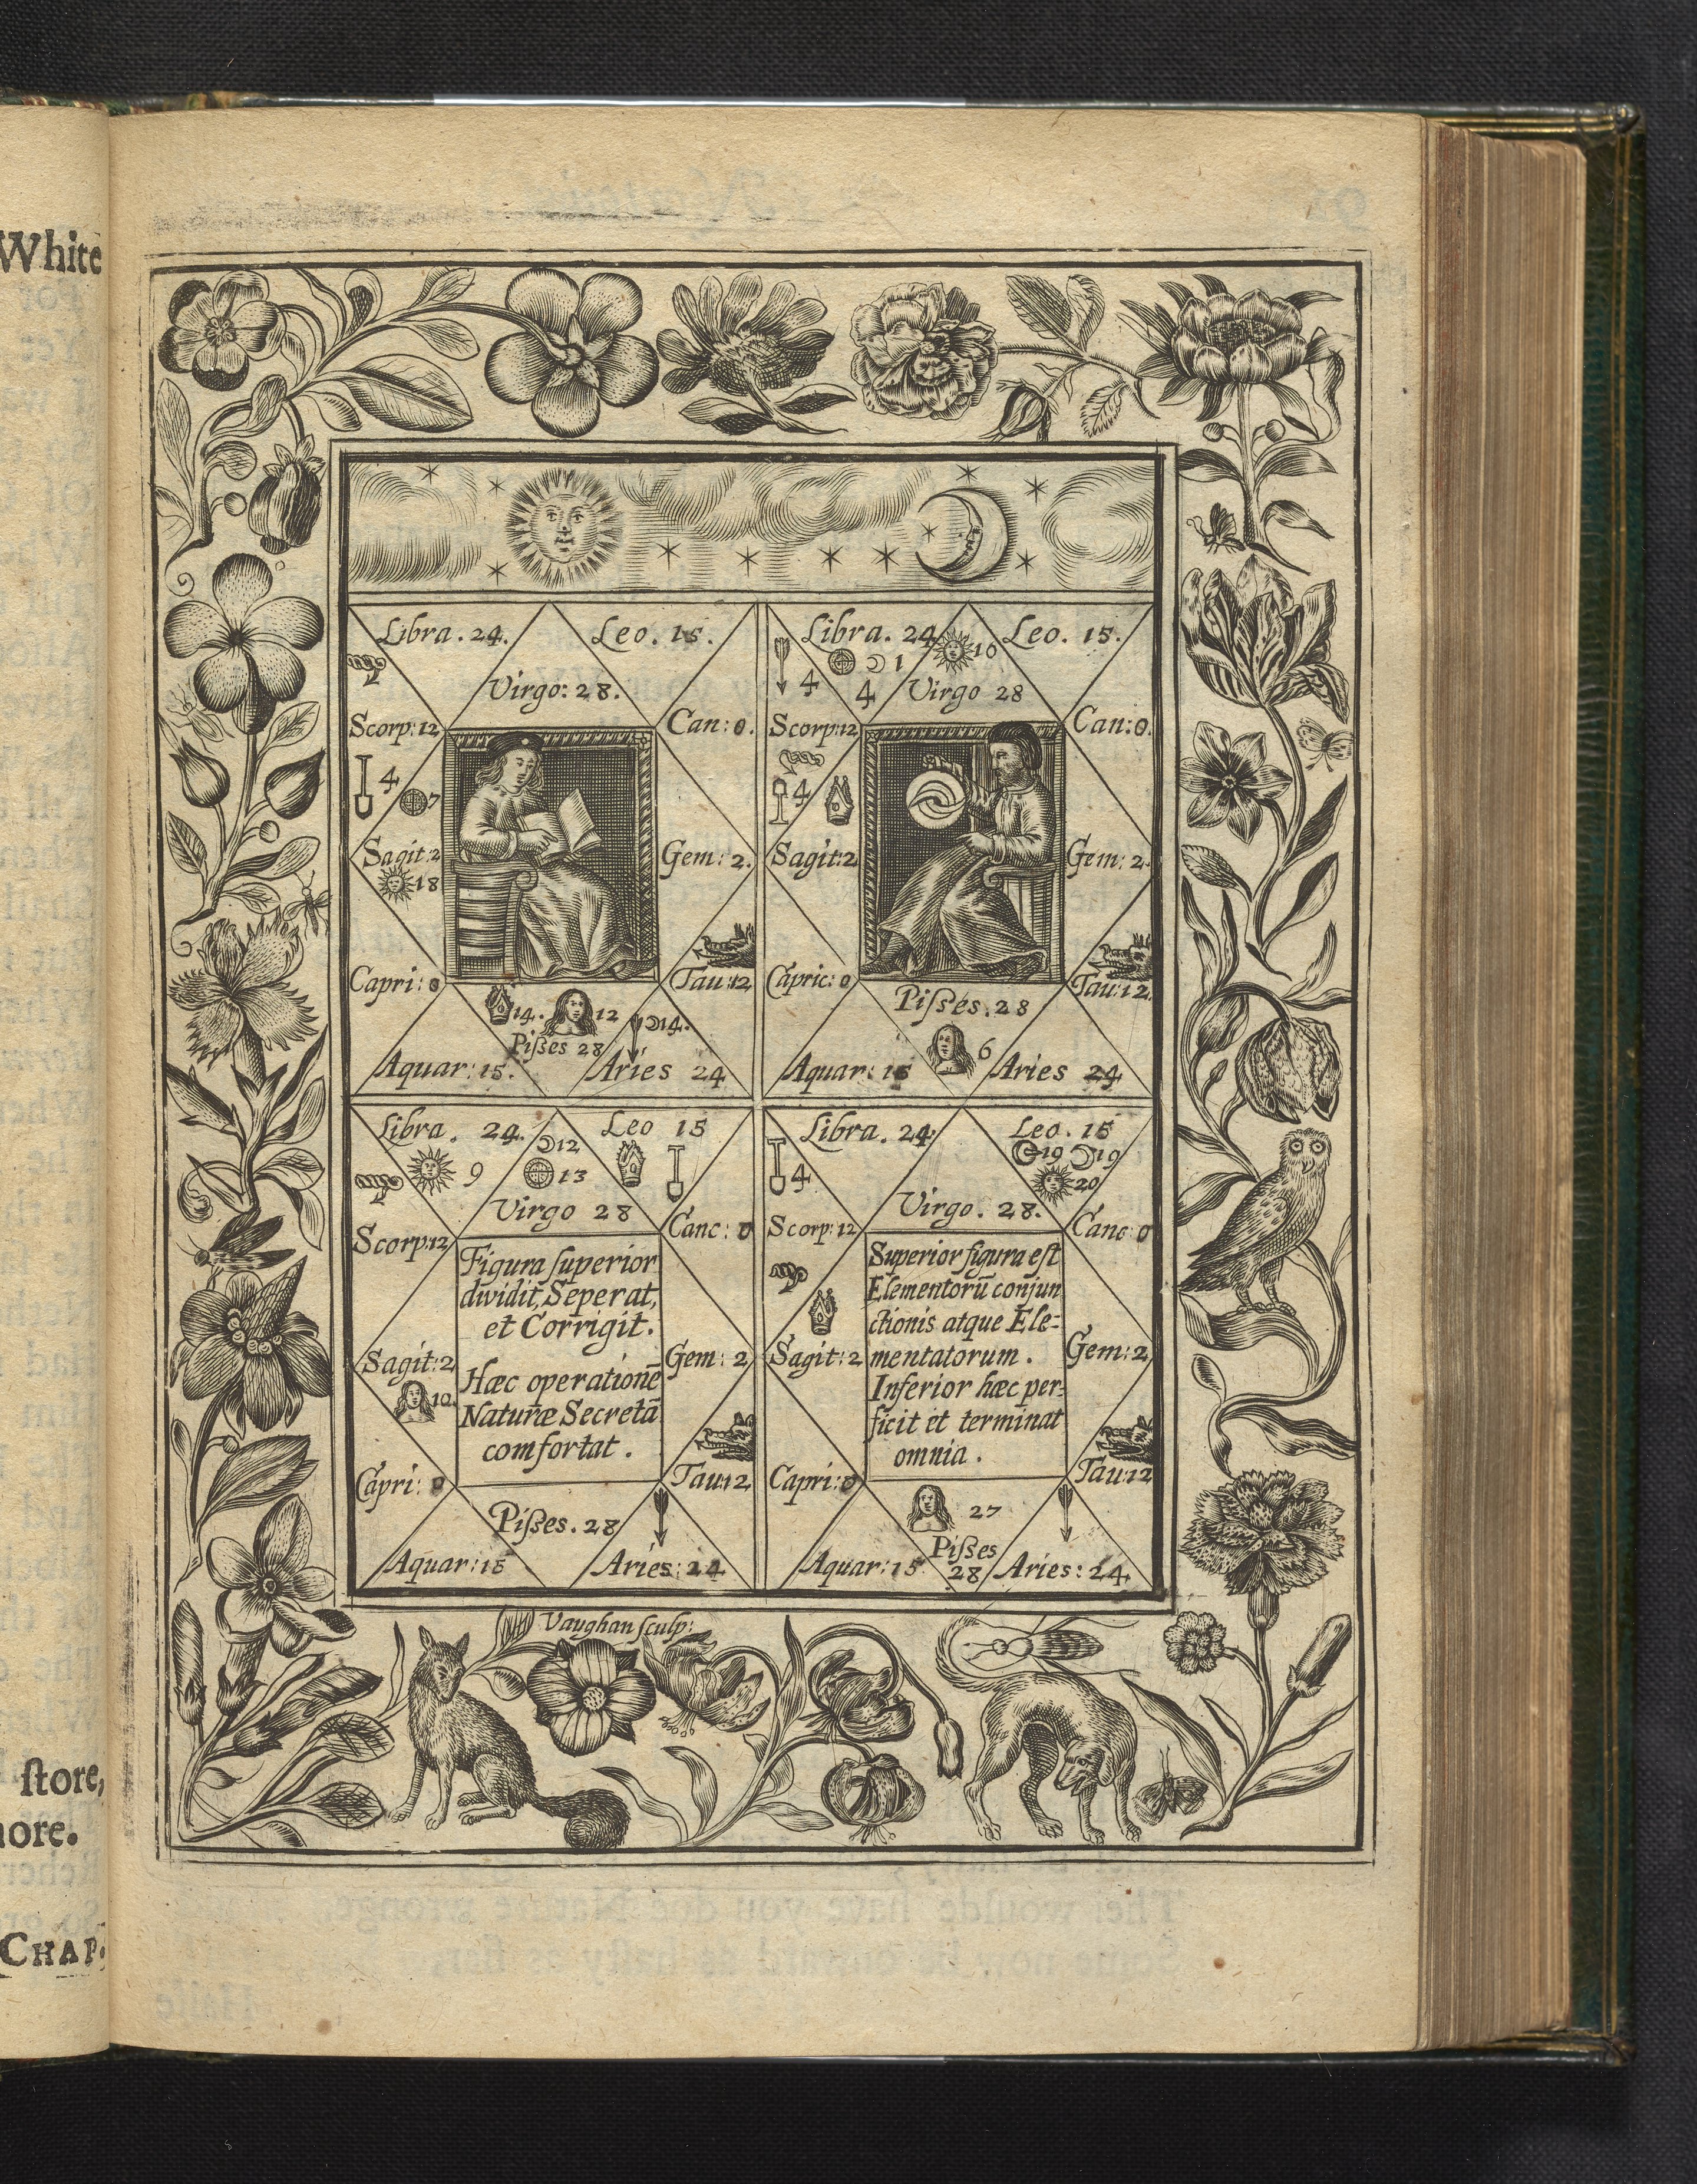 White
ſtore,
ore.
CHAP.
Libra. 24.
Leo. 15.
Virgo: 28.
Scorp: 12
Can: 0.
4
7
Sagit: 2
18
Gem: 2.
Capri: 0
Tau: 12
14.
12
14.
Piſſes 28
Aquar: 15.
Aries 24
Libra. 24
10
Leo. 15.
4
1
4
Virgo 28
Scorp: 12
Can: 0.
4
Sagit: 2
Gem: 2.
Capric: 0
Tau: 12.
Piſſes. 28
6
Aquar: 15
Aries 24
Libra. 24.
12
Leo 15
9
13
Virgo 28
Scorp: 12
Canc: 0
Figura ſuperior
dividit, Seperat,
et Corrigit.
Hæc operationē
Naturæ Secretā
comfortat.
Sagit: 2
10.
Gem: 2
Capri: 0
Tau: 12
Piſſes. 28
Aquar: 15
Aries: 24
Libra. 24
Leo. 15
19
19
4
20
Virgo. 28.
Scorp: 12
Canc 0
Superior figura eſt
Elementorū conjun
ctionis atque Ele=
mentatorum.
Inferior hæc per=
ficit et terminat
omnia.
Sagit: 2
Gem: 2
Capri: 0
Tau: 12
27
Piſſes
28
Aquar: 15
Aries: 24
Vaughan ſculp: